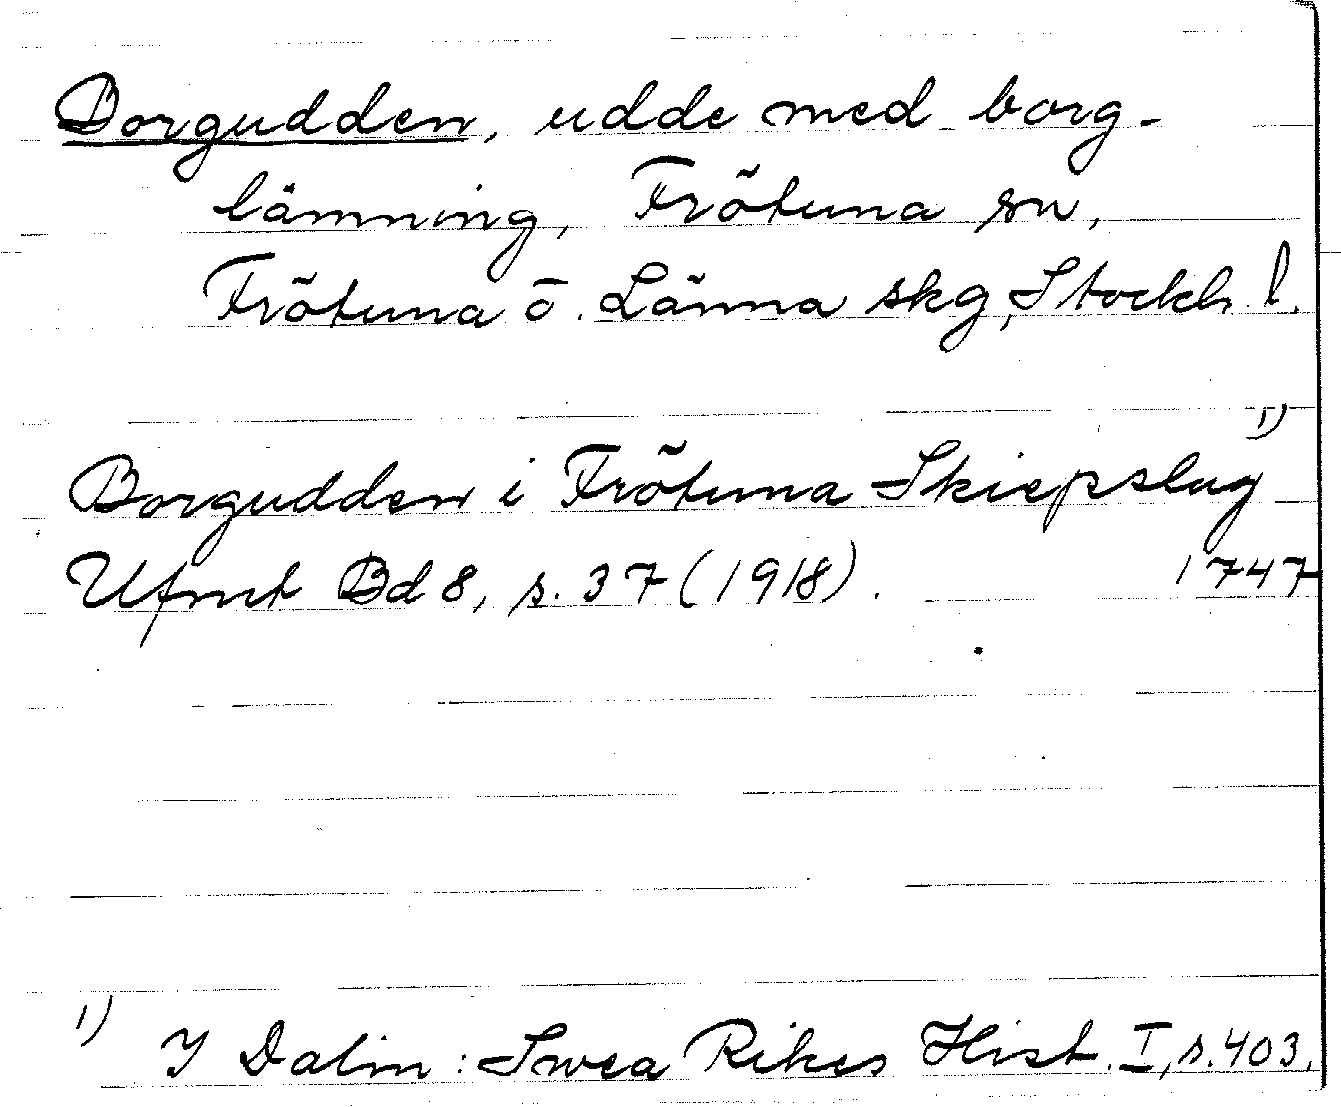 Borgudden, udde med borg-
lämning, Frötuna sn,
Frötuna o. Länna skg, Stockh. l.
Borgudden i Frötuna Skiepslag 1)
Ufmt Bd 8, s. 37 (1918). 1747
1) I Dalin: Swea Rikes Hist. I, s. 403.